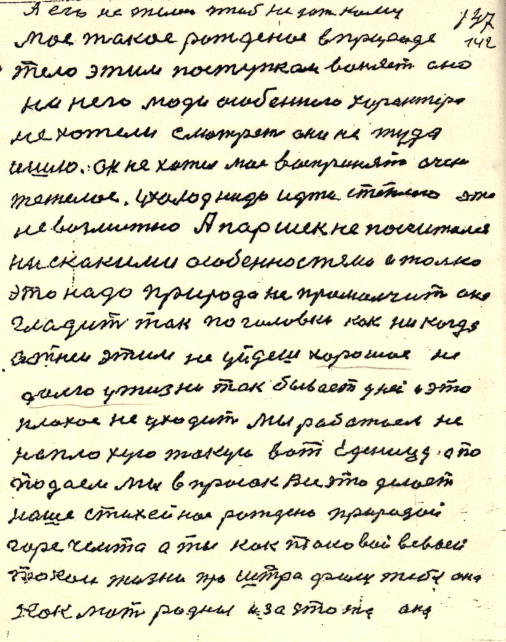 А его не
137
мое такое рожденое в природе
142
тело этим поступкам воняет оно
на него люди особенного характера
не хотели смотреть они не туда
ишло. он не хотел мое воспринять очен
тежелое. ухолод надо идти степлого это
невозможно А паршек не посчитался
нискакими особенностями а только
это надо природа не промолчит она
гладит так поголовки как никогда
от неи этим не уйдеш хорошое не
долго ужизни так бывает дней а это
плохое не уходит мы работаем не
на плохую такую вот еденицу. а по
подаем мы впросак Все это делает
наше стихейное рождено природой
горе чемта а ты как таковой всвоей
жизни про штрафили тебе она
как мат родная и за это же она